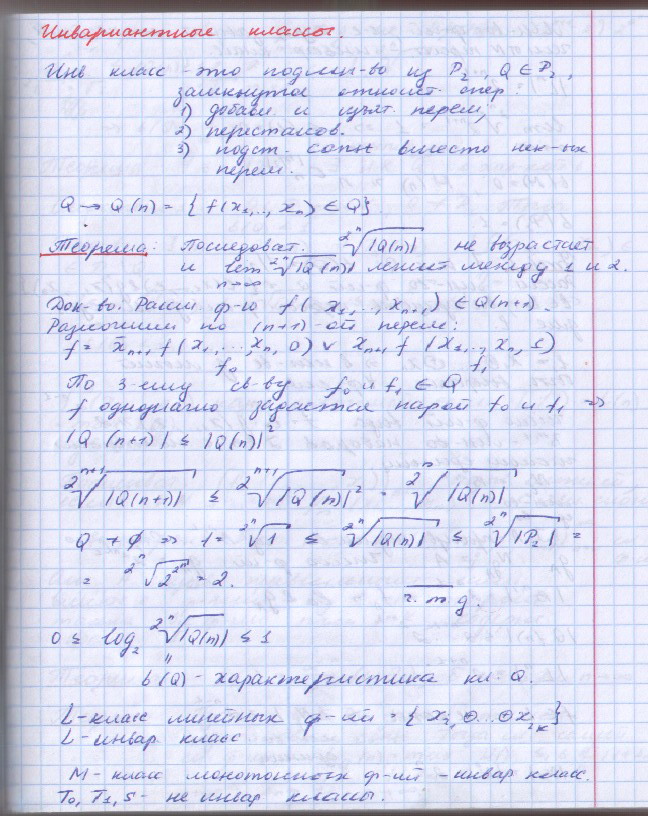 Инвариантные классы.
Инв класс - это подмн-во из P₂, Q ∈ P₂,
замкнутое относит. опер:
1) добавл и изъят. перем;
2) перестановв.
3) подст. const вместо нек-ых
перем.
Q → Q(n) = { f(x₁,.., xₙ) ∈ Q}.
Теорема: Последоват. ^{2ⁿ}√|Q(n)| не возрастает
и lim_{n→∞} ^{2ⁿ}√|Q(n)| лежит между 1 и 2.
Док-во: Рассм ф-ю f( x₁,..., xₙ₊₁) ∈ Q(n+1).
Разложим по (n+1)-ой перем:
f = x̄ₙ₊₁ f (x₁,...,xₙ, 0) ∨ xₙ₊₁ f (x₁,.., xₙ, 1)
f₀ f₁
По 3-ему св-ву f₀ и f₁ ∈ Q
f однозначно задается парой f₀ и f₁ ⇒
|Q (n+1)| ≤ |Q(n)|²
^{2ⁿ⁺¹}√|Q(n+1)| ≤ ^{2ⁿ⁺¹}√|Q(n)|² = ^{2ⁿ}√|Q(n)|
Q ≠ ∅ ⇒ 1 = ^{2ⁿ}√1 ≤ ^{2ⁿ}√|Q(n)| ≤ ^{2ⁿ}√|P₂| =
= ^{2ⁿ}√2^{2ⁿ} = 2.
ч. т д.
0 ≤ log₂ ^{2ⁿ}√|Q(n)| ≤ 1
"
б(Q) - характеристика кл. Q.
L-класс линейных ф-ий = { x_{i₁} ⊕...⊕ x_{iₖ}}
L-инвар класс
M - класс монотонных ф-ий - инвар класс.
T₀, T₁, S - не инвар классы.